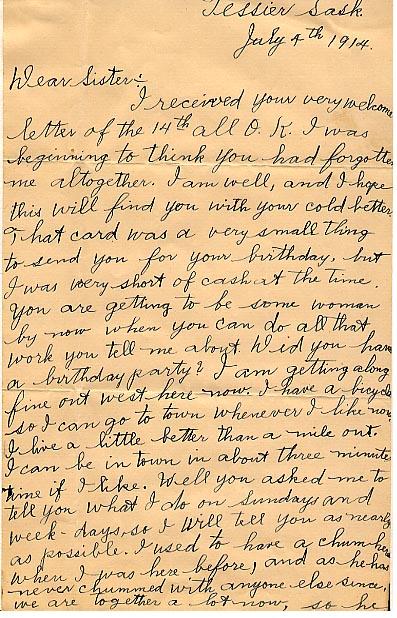 Tessier Sask
July 4th 1914.
Dear Sister:-
I received your very welcome
letter of the 14th all O.K. I was
beginning to think you had forgotten
me altogether. I am well, and I hope
this will find you with your cold better.
That card was a very small thing
to send you for your birthday, but
I was very short of cash at the time.
You are getting to be some woman
by now when you can do all that
work you tell me about. Did you have
a birthday party? I am getting along
fine out west here now. I have a bicycle
so I can go to town whenever I like now.
I live a little better than a mile out.
I can be in town in about three minutes
time if I like. Well you asked me to
tell you what I do on Sundays and
week-days, so I will tell you as nearly
as possible. I used to have a chum here
when I was here before, and as he has
never chummed with anyone else since,
we are together a lot now, so he